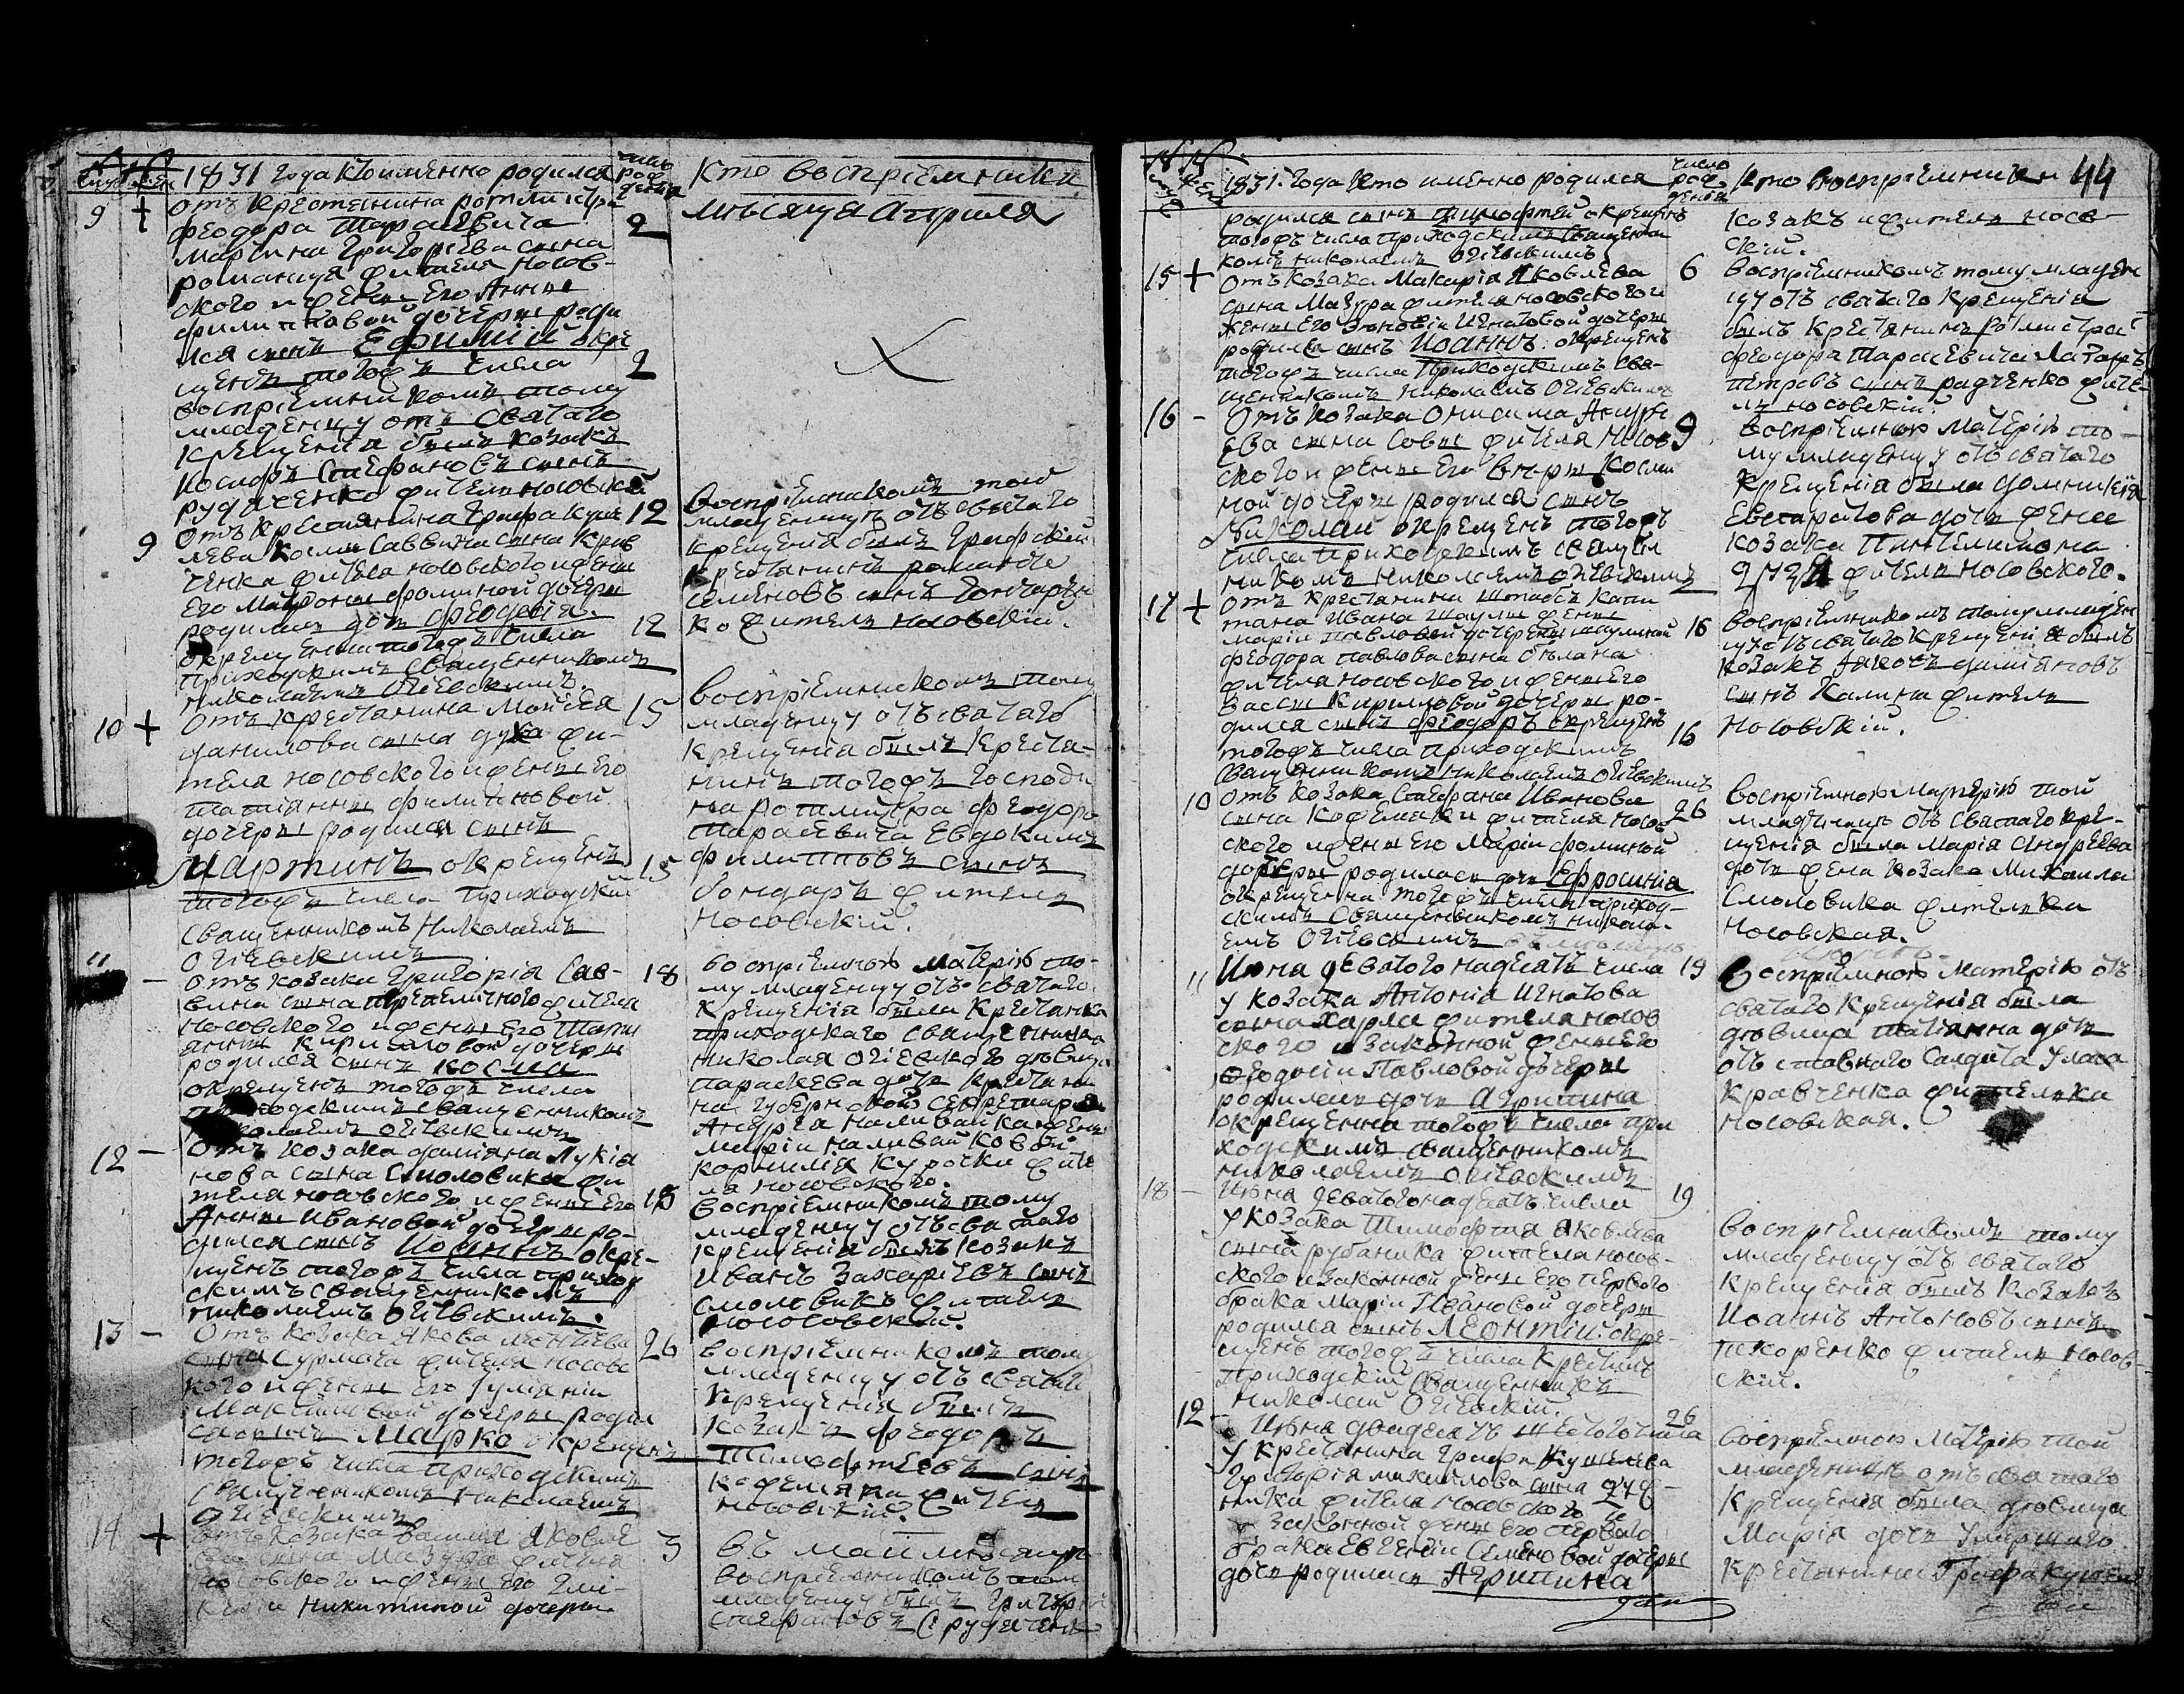 1831 года кто именно родился
число рождения
Кто воспріемники
9 + отъ крестянина ротмистра 2
месяца Априля
феодора Тарасевича
Мартина Григоріева сына
романця жителя Носов-
ского и жены его Анны
филиповой дочеры роди
лся сынъ Ефимій окре
щенъ тогожъ числа 2
воспріемникомъ тому
младенцу отъ святаго
крещенія былъ козакъ
Иосифъ Стефановъ сынъ
рудченко житель носовскій
9 отъ крестянина Графа Куше 12
лева Космы Саввина сына Крив
ченка жителя носовского и жены
его Матроны фоминой дочеры
родилась дочь феодосія.
окрещенна тогожъ числа 12
приходскимъ священникомъ
николаемъ Огіевскимъ
воспріемникомъ той
младенице отъ святаго
крещенія былъ Графскій
крестянинъ романъ
семеновъ сынъ Гончарен
ко житель носовскій.
10 + отъ крестянина Моисея 15
данилова сына дука жи-
теля носовского и жены его
татіянны филиповой
дочеры родился сынъ
Мартинъ окрещенъ 15
тогожъ числа приходскимъ
священникомъ Николаемъ
Огіевскимъ
воспріемникомъ тому
младенцу отъ святаго
крещенія былъ крестя-
нинъ тогожъ господи
на ротмистра феодора
Тарасевича Евдокимъ
филиповъ сынъ
бондаръ житель
носовскій.
11 - отъ козака Григорія Сав- 18
вина сына перепеличного жителя
носовского и жены его Таті
янны Кириловой дочеры
родился сынъ Косма
окрещенъ тогожъ числа
приходскимъ священникомъ
николаемъ огіевскимъ
воспріемною матерію то-
му младенцу отъ святаго
крещенія была крестянка
приходскаго священника
николая огіевского девица
параскева дочь крестяни
на губернскаго секретаря
Андрея наливайка жены
маріи наливайковой
корнилія курочки жите
ля носовского.
12 - отъ козака даміяна Лукія
нова сына Смоловика жи
теля носовского и жены его 18
Анны Ивановой дочеры ро-
дился сынъ Иоаннъ окре-
щенъ тогожъ числа приход
скимъ священникомъ
николаемъ Огіевскимъ.
воспріемникомъ тому
младенцу отъ святаго
крещенія былъ козакъ
Иванъ Захаріевъ сынъ
смоловикъ житель
носовский.
13 - отъ козака Якова леонтіева
сына Сурмача жителя носовс 26
кого и жены его Іуліяніи
Максимовой дочеры родил
ся сынъ Марко окрещенъ
тогожъ числа приходскимъ
священникомъ Николаемъ
Огіевскимъ
воспріемникомъ тому
младенцу отъ святаго
крещенія былъ
козакъ феодоръ
Тимофтеевъ сынъ
кожемяка житель
носовскій.
14 + отъ козака Василія яковле 3
ва сына Мазура жителя
носовского и жены его Глі-
керіи Никитиной дочеры
въ маіи месяце
воспріемникомъ тому
младенцу былъ Григорій
стефановъ Срудченко
1831. года кто именно родился
число рождения
кто воспріемники 44
родился сынъ Тимофтей окрещенъ
тогожъ числа приходскимъ священни
комъ николаемъ огіевскимъ
козакъ и житель носов-
скій.
15 + отъ козака Макарія Яковлева 6
сына Мазура жителя носовского и
жены его Зіновіи Игнатовой дочеры
родился сынъ Иоаннъ. окрещенъ
тогожъ числа приходскимъ свя-
щенникомъ Николаемъ Огіевскимъ
воспріемникомъ тому младен
цу отъ святаго крещенія
былъ крестянинъ ротмистра
феодора Тарасевича Лазаръ
петровъ сынъ радченко жите-
ль носовскій.
16 - отъ козака Онисима Андре
ева сына Совы жителя Носов 9
ского и жены его веры Косми
ной дочеры родился сынъ
Николай окрещенъ тогожъ
числа приходскимъ священ
никомъ николаемъ огіевскимъ
воспріемною матерію то-
му младенцу отъ святаго
крещенія была домникія
Евстратова дочь жена
козака Пантелимона
жителя носовского.
17 + отъ крестянина штабсъ капи
тана Ивана Шаулы жены
маріи павловой дочеры шаулиной 16
феодора павлова сына белана
жителя носовского и жены его
вассы Кириловой дочеры ро-
дился сынъ феодоръ окрещенъ
тогожъ числа приходскимъ 16
священникомъ николаемъ огіевскимъ
воспріемникомъ тому младен
цу отъ святаго крещенія былъ
козакъ Яковъ даміяновъ
сынъ Калина житель
носовскій.
10 отъ козака Стефана Иванова
сына Кожемяки жителя носов 26
ского и жены его Маріи фоминой
дочеры родилась дочь Ефросинія
окрещенна тогожъ числа приход-
скимъ священникомъ никола-
емъ Огіевскимъ
воспріемною матерію той
младенице отъ святаго кре-
щенія была Марія Андреева
дочь жена козака Михаила
Смоловика жителька
носовская.
11 Июна девятогонадесять числа 19
у козака Антонія Игнатова
сына харла жителя носов
ского и законной жены его
феодосіи Павловой дочеры
родилась дочь Агрипина
окрещенна тогожъ числа при
ходскимъ священникомъ
николаемъ огіевскимъ
воспріемною матерію отъ
святаго крещенія была
девица татіянна дочь
отъставного Салдата Уласа
Кравченка жителька
носовская.
18 - Июна девятогонадесять числа 19
у козака Тимофтія яковлева
сына рубаника жителя носов-
ского и законной жены его первого
брака Маріи Ивановой дочеры
родился сынъ Леонтій. окре-
щенъ тогожъ числа крестилъ
приходскій священникъ
николай Огіевскій.
воспріемникомъ тому
младенцу отъ святаго
крещенія былъ козакъ
Иоаннъ Антоновъ сынъ
шкоренко житель носов-
скій.
12 - Июна двадесять шестого числа 26
у крестянина Графа Кушелева
Григорія михайлова сына
жителя носовского и
законной жены его первого
брака Евгеніи Семеновой дочеры
дочь родилась Агрипина
воспріемною матерію той
младенице отъ святаго
крещенія была девица
Марія дочь умершаго
крестянина Графа Кушеле